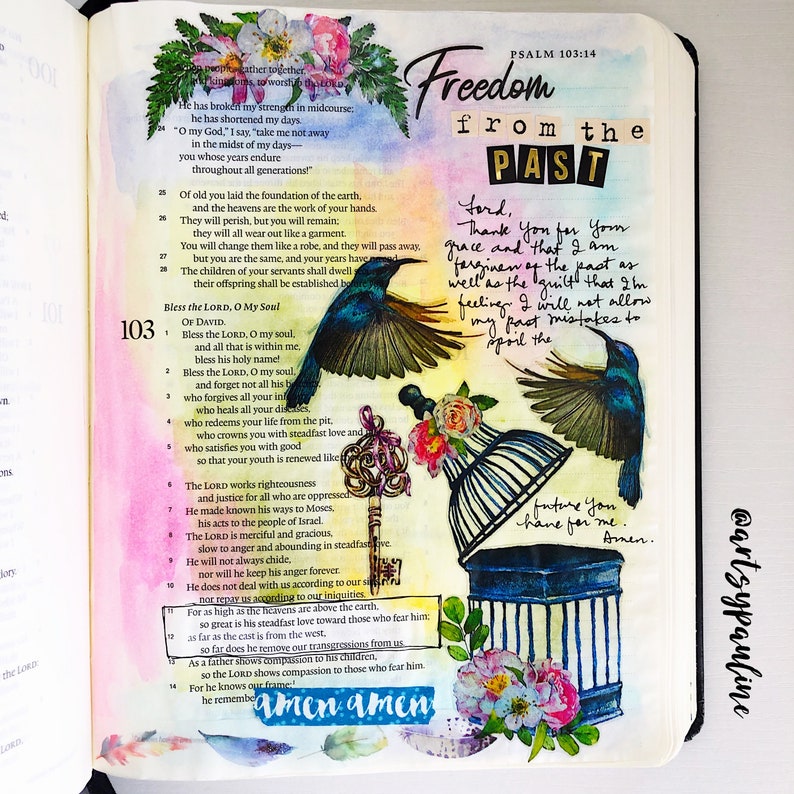 PSALM 103:14
Freedom
from the
PAST
Lord,
Thank You for Your
grace and that I am
forgiven of the past as
well as the guilt that I'm
feeling. I will not allow
my past mistakes to
spoil the
future You
have for me.
Amen.
when peoples gather together,
and kingdoms, to worship the LORD.
He has broken my strength in midcourse;
he has shortened my days.
24 "O my God," I say, "take me not away
in the midst of my days—
you whose years endure
throughout all generations!"
25 Of old you laid the foundation of the earth,
and the heavens are the work of your hands.
26 They will perish, but you will remain;
they will all wear out like a garment.
You will change them like a robe, and they will pass away,
27 but you are the same, and your years have no end.
28 The children of your servants shall dwell
their offspring shall be established before
Bless the LORD, O My Soul
103 OF DAVID.
1 Bless the LORD, O my soul,
and all that is within me,
bless his holy name!
2 Bless the LORD, O my soul,
and forget not all his benefits,
3 who forgives all your
who heals all your diseases,
4 who redeems your life from the pit,
who crowns you with steadfast love and
5 who satisfies you with good
so that your youth is renewed like
6 The LORD works righteousness
and justice for all who are oppressed.
7 He made known his ways to Moses,
his acts to the people of Israel.
8 The LORD is merciful and gracious,
slow to anger and abounding in steadfast love.
9 He will not always chide,
nor will he keep his anger forever.
10 He does not deal with us according to our sins,
nor repay us according to our iniquities.
11 For as high as the heavens are above the earth,
so great is his steadfast love toward those who fear him;
12 as far as the east is from the west,
so far does he remove our transgressions from us.
13 As a father shows compassion to his children,
so the LORD shows compassion to those who fear him.
14 For he knows our frame;
he remembe
amen amen
@artsypauline